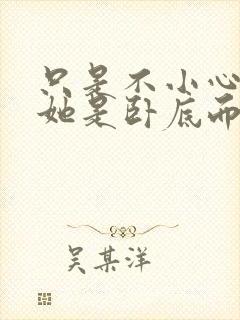 只是不小心
她是卧底而
吴某洋